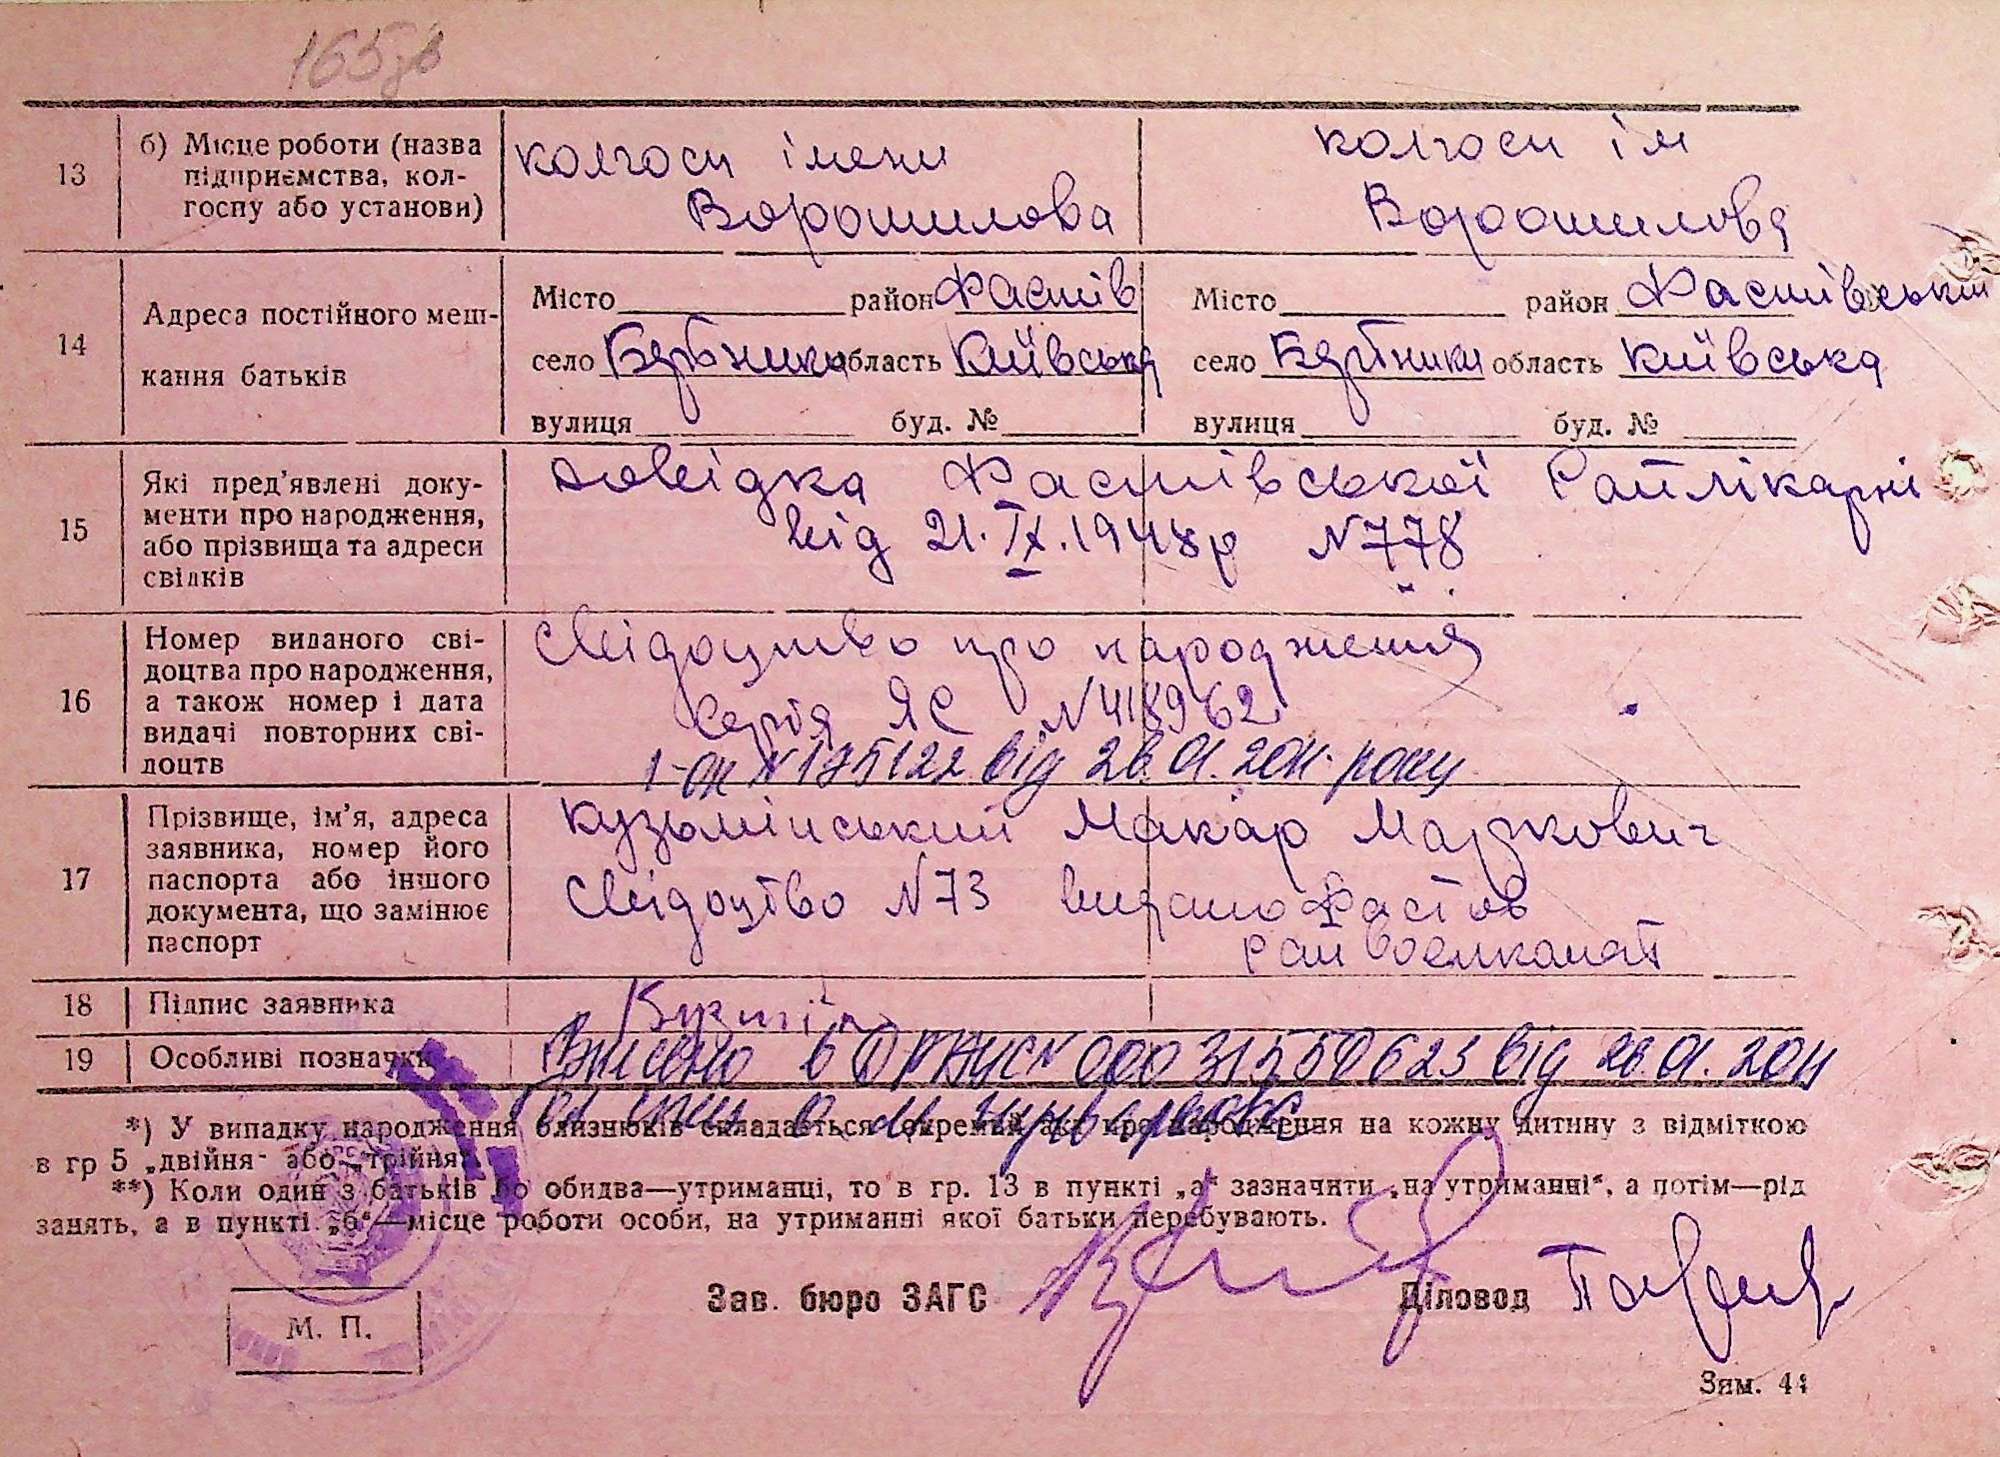 165
13
б) Місце роботи (назва
підприємства, кол-
госпу або установи)
колгосп імени
Ворошилова
колгосп ім
Ворошилова
14
Адреса постійного меш-
кання батьків
Місто район Фастів
село область Київська
вулиця буд. №
Місто район Фастівський
село область Київська
вулиця буд. №
15
Які пред'явлені доку-
менти про народження,
або прізвища та адреси
свідків
Довідка Фастівської Райлікарні
від 21.IX.1948р N778
16
Номер виданого сві-
доцтва про народження,
а також номер і дата
видачі повторних сві-
доцтв
Свідоцтво про народження
Серія ЯС N418962
N 175122 від 26.01.2011 року
17
Прізвище, ім'я, адреса
заявника, номер його
паспорта або іншого
документа, що замінює
паспорт
Кузьмінський Макар Маркович
Свідоцтво N73 видано Фастів
Райвоєнкомат
18
Підпис заявника
19
Особливі позначки
Внесено в від 26.01.2011
*) У випадку народження близнюків складається окремий акт про народження на кожну дитину з відміткою
в гр 5 „двійня" або „трійня".
**) Коли один з батьків бо обидва—утриманці, то в гр. 13 в пункті „а" зазначити „на утриманні", а потім—рід
занять, а в пункті „б"—місце роботи особи, на утриманні якої батьки перебувають.
Зав. бюро ЗАГС
Діловод
М. П.
Зам. 44